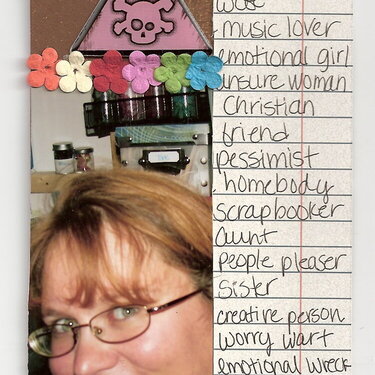 music lover
emotional girl
insure woman
Christian
friend
pessimist
homebody
scrapbooker
aunt
people pleaser
Sister
creative person
worry wart
emotional wreck